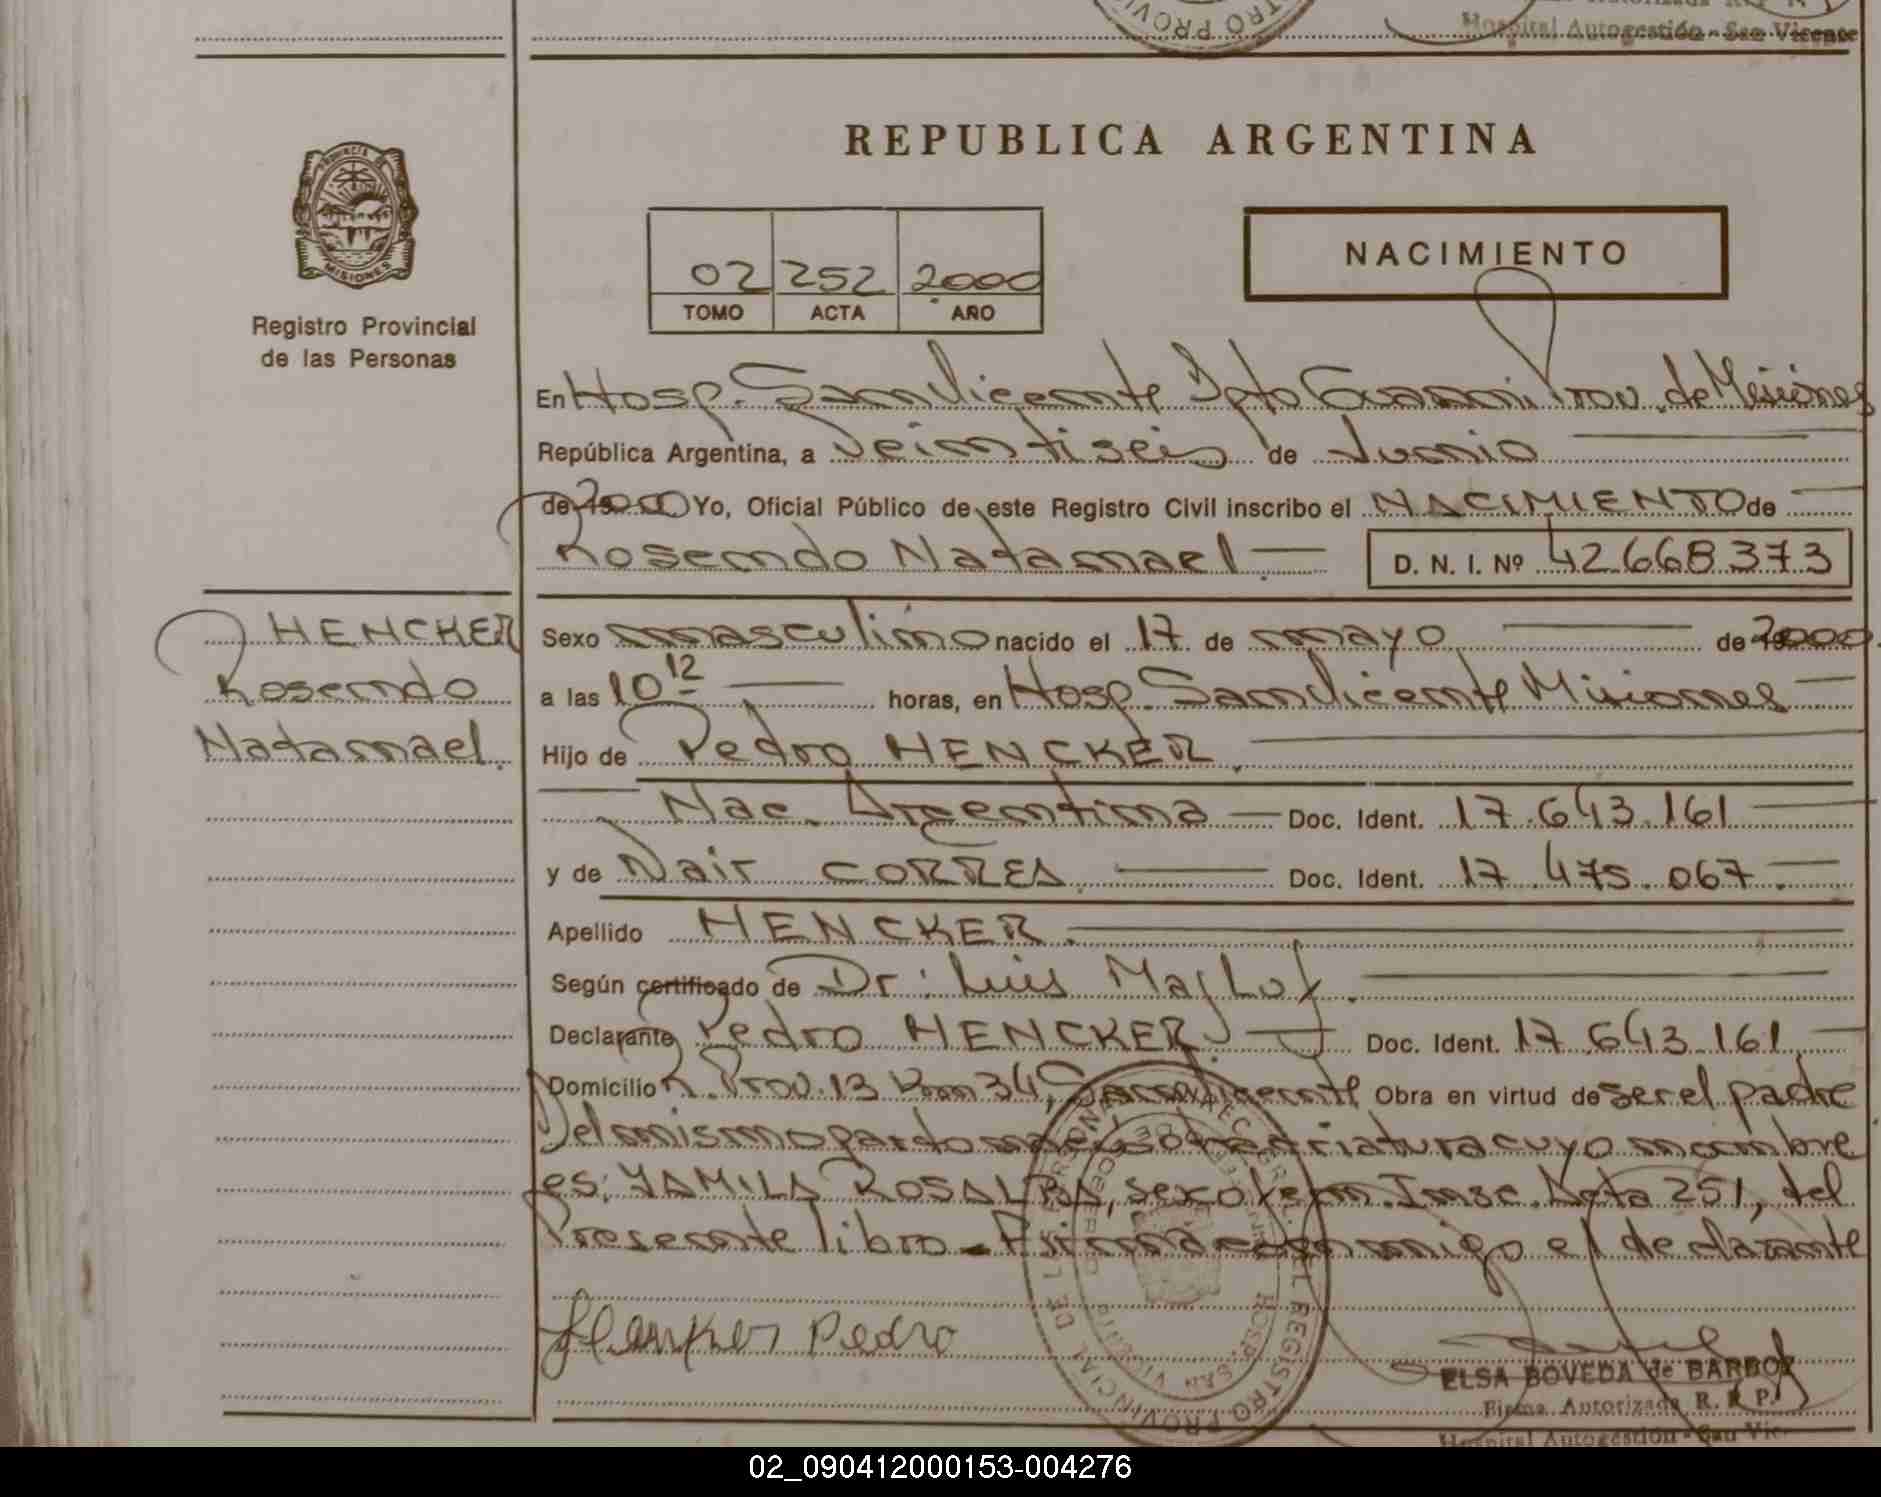 Hospital Autogestión - San Vicente
REPUBLICA ARGENTINA
PROVINCIA DE
MISIONES
Registro Provincial
de las Personas
02 252 2000
TOMO ACTA AÑO
NACIMIENTO
En Hosp. San Vicente Dpto Guarani Prov. de Misiones
República Argentina, a Veintiseis de Junio
de 2000 Yo, Oficial Público de este Registro Civil inscribo el NACIMIENTO de
Rosendo Natanael D. N. I. Nº 42.668.373
HENCKER
Rosendo
Natanael.
Sexo masculino nacido el 17 de mayo de 2000
a las 10 12 horas, en Hosp. San Vicente Misiones
Hijo de Pedro HENCKER.
Nac. Argentina Doc. Ident. 17.643.161
y de Nair CORREA. Doc. Ident. 17.475.067.
Apellido HENCKER.
Según certificado de Dr: Luis
Declarante Pedro HENCKER. Doc. Ident. 17.643.161
Domicilio R. Prov. 13 Km 34, San Vicente Obra en virtud de ser el padre
Del mismo parto nacio otra criatura cuyo nombre
es: YAMILA ROSALBA, sexo fem. Insc. Acta 251, del
Presente libro. Firma conmigo el declarante
Hencker Pedro
REGISTRO PROVINCIAL DE LAS PERSONAS
HOSP. SAN VICENTE
ELSA BOVEDA de BARBOZ
Firma Autorizada R. P. P.
Hospital Autogestión - San Vic.
02_090412000153-004276